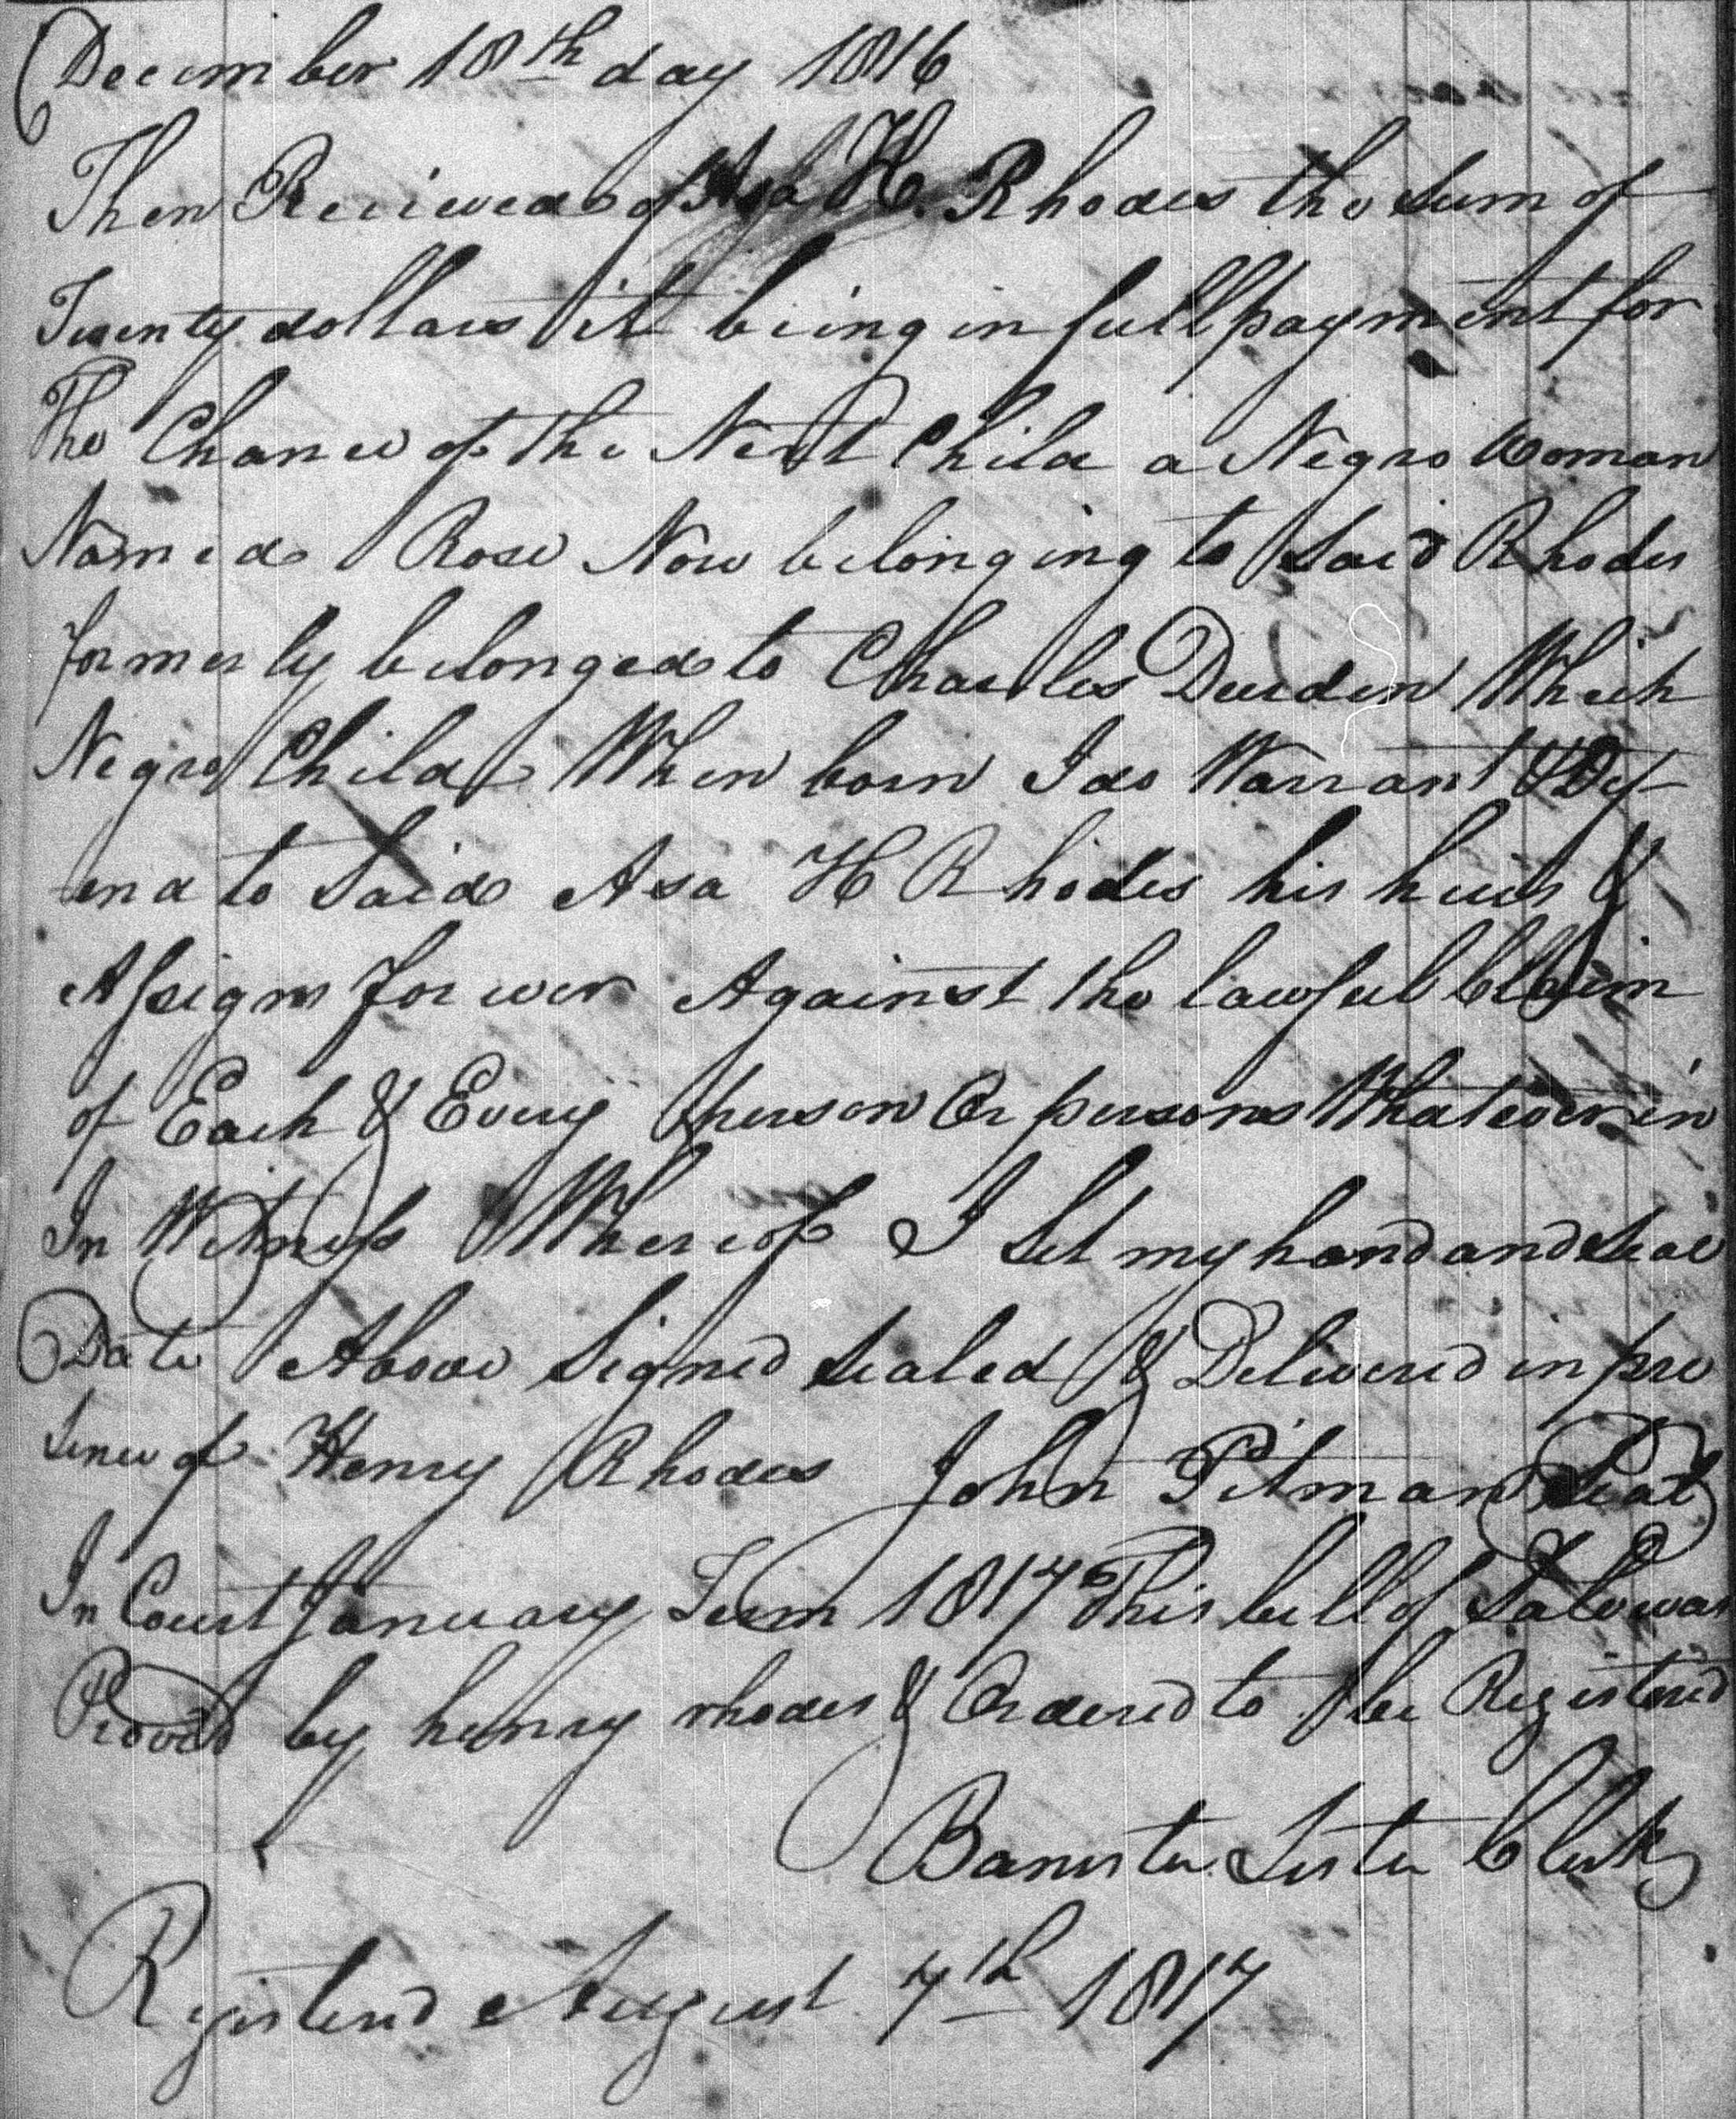 December 18th day 1816
Then Recieved of Asa H. Rhodes the sum of
Twenty dollars it being in full payment for
The Chance of the Next Child a Negro Woman
Named Rose Now belonging to Said Rhodes
formerly belonged to Charles Durden Which
Negro Child When born I do Warrant & Def-
end to Said Asa H Rhodes his heirs &
Assigns for ever Against the lawful Claim
of Each & Every person Or persons Whatever in
In Witness Whereof I Set my hand and Seal
Date Above Signed Sealed & Delivered in pre
sence of Henry Rhodes John Pitman Seal
In Court January Term 1817 This bill of Sale was
Proved by henry rhodes & Ordered to be Registered
Banister Lester Clerk
Registerd August 7th 1817